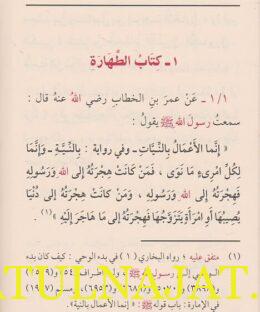 ١ ـ كِتَابُ الطَّهَارَةِ
١/١ ـ عَنْ عمرَ بنِ الخطابِ رضي اللهُ عنهُ قال :
سمعتُ رسولَ اللهِ ﷺ يقولُ :
« إِنَّما الأَعْمَالُ بالنِّيَّاتِ ـ وفي رواية : بِالنِّيَّةِ ـ وَإِنَّمَا
لِكُلِّ امْرِىءٍ مَا نَوَى ، فَمَنْ كَانَتْ هِجْرَتُهُ إِلى اللهِ وَرَسُولِهِ
فَهِجْرَتُهُ إِلَى اللهِ وَرَسُولِهِ ، وَمَنْ كَانَتْ هِجْرَتُهُ إِلَى دُنْيَا
يُصِيبُهَا أَوِ امْرَأَةٍ يَتَزَوَّجُهَا فَهِجْرَتُهُ إِلى مَا هَاجَرَ إِلَيْهِ »(١) .
(١) متفق عليه : رواه البخاري (١) في بدء الوحي : كيف كان بدء
الوحي إلى رسول الله ﷺ ، وله أطراف (٥٤) و(٢٥٢٩)
و(٣٨٩٨) و(٥٠٧٠) و(٦٦٨٩) و(٦٩٥٣) ، ومسلم (١٩٠٧)
في الإمارة : باب قوله ﷺ : « إنما الأعمال بالنية » .